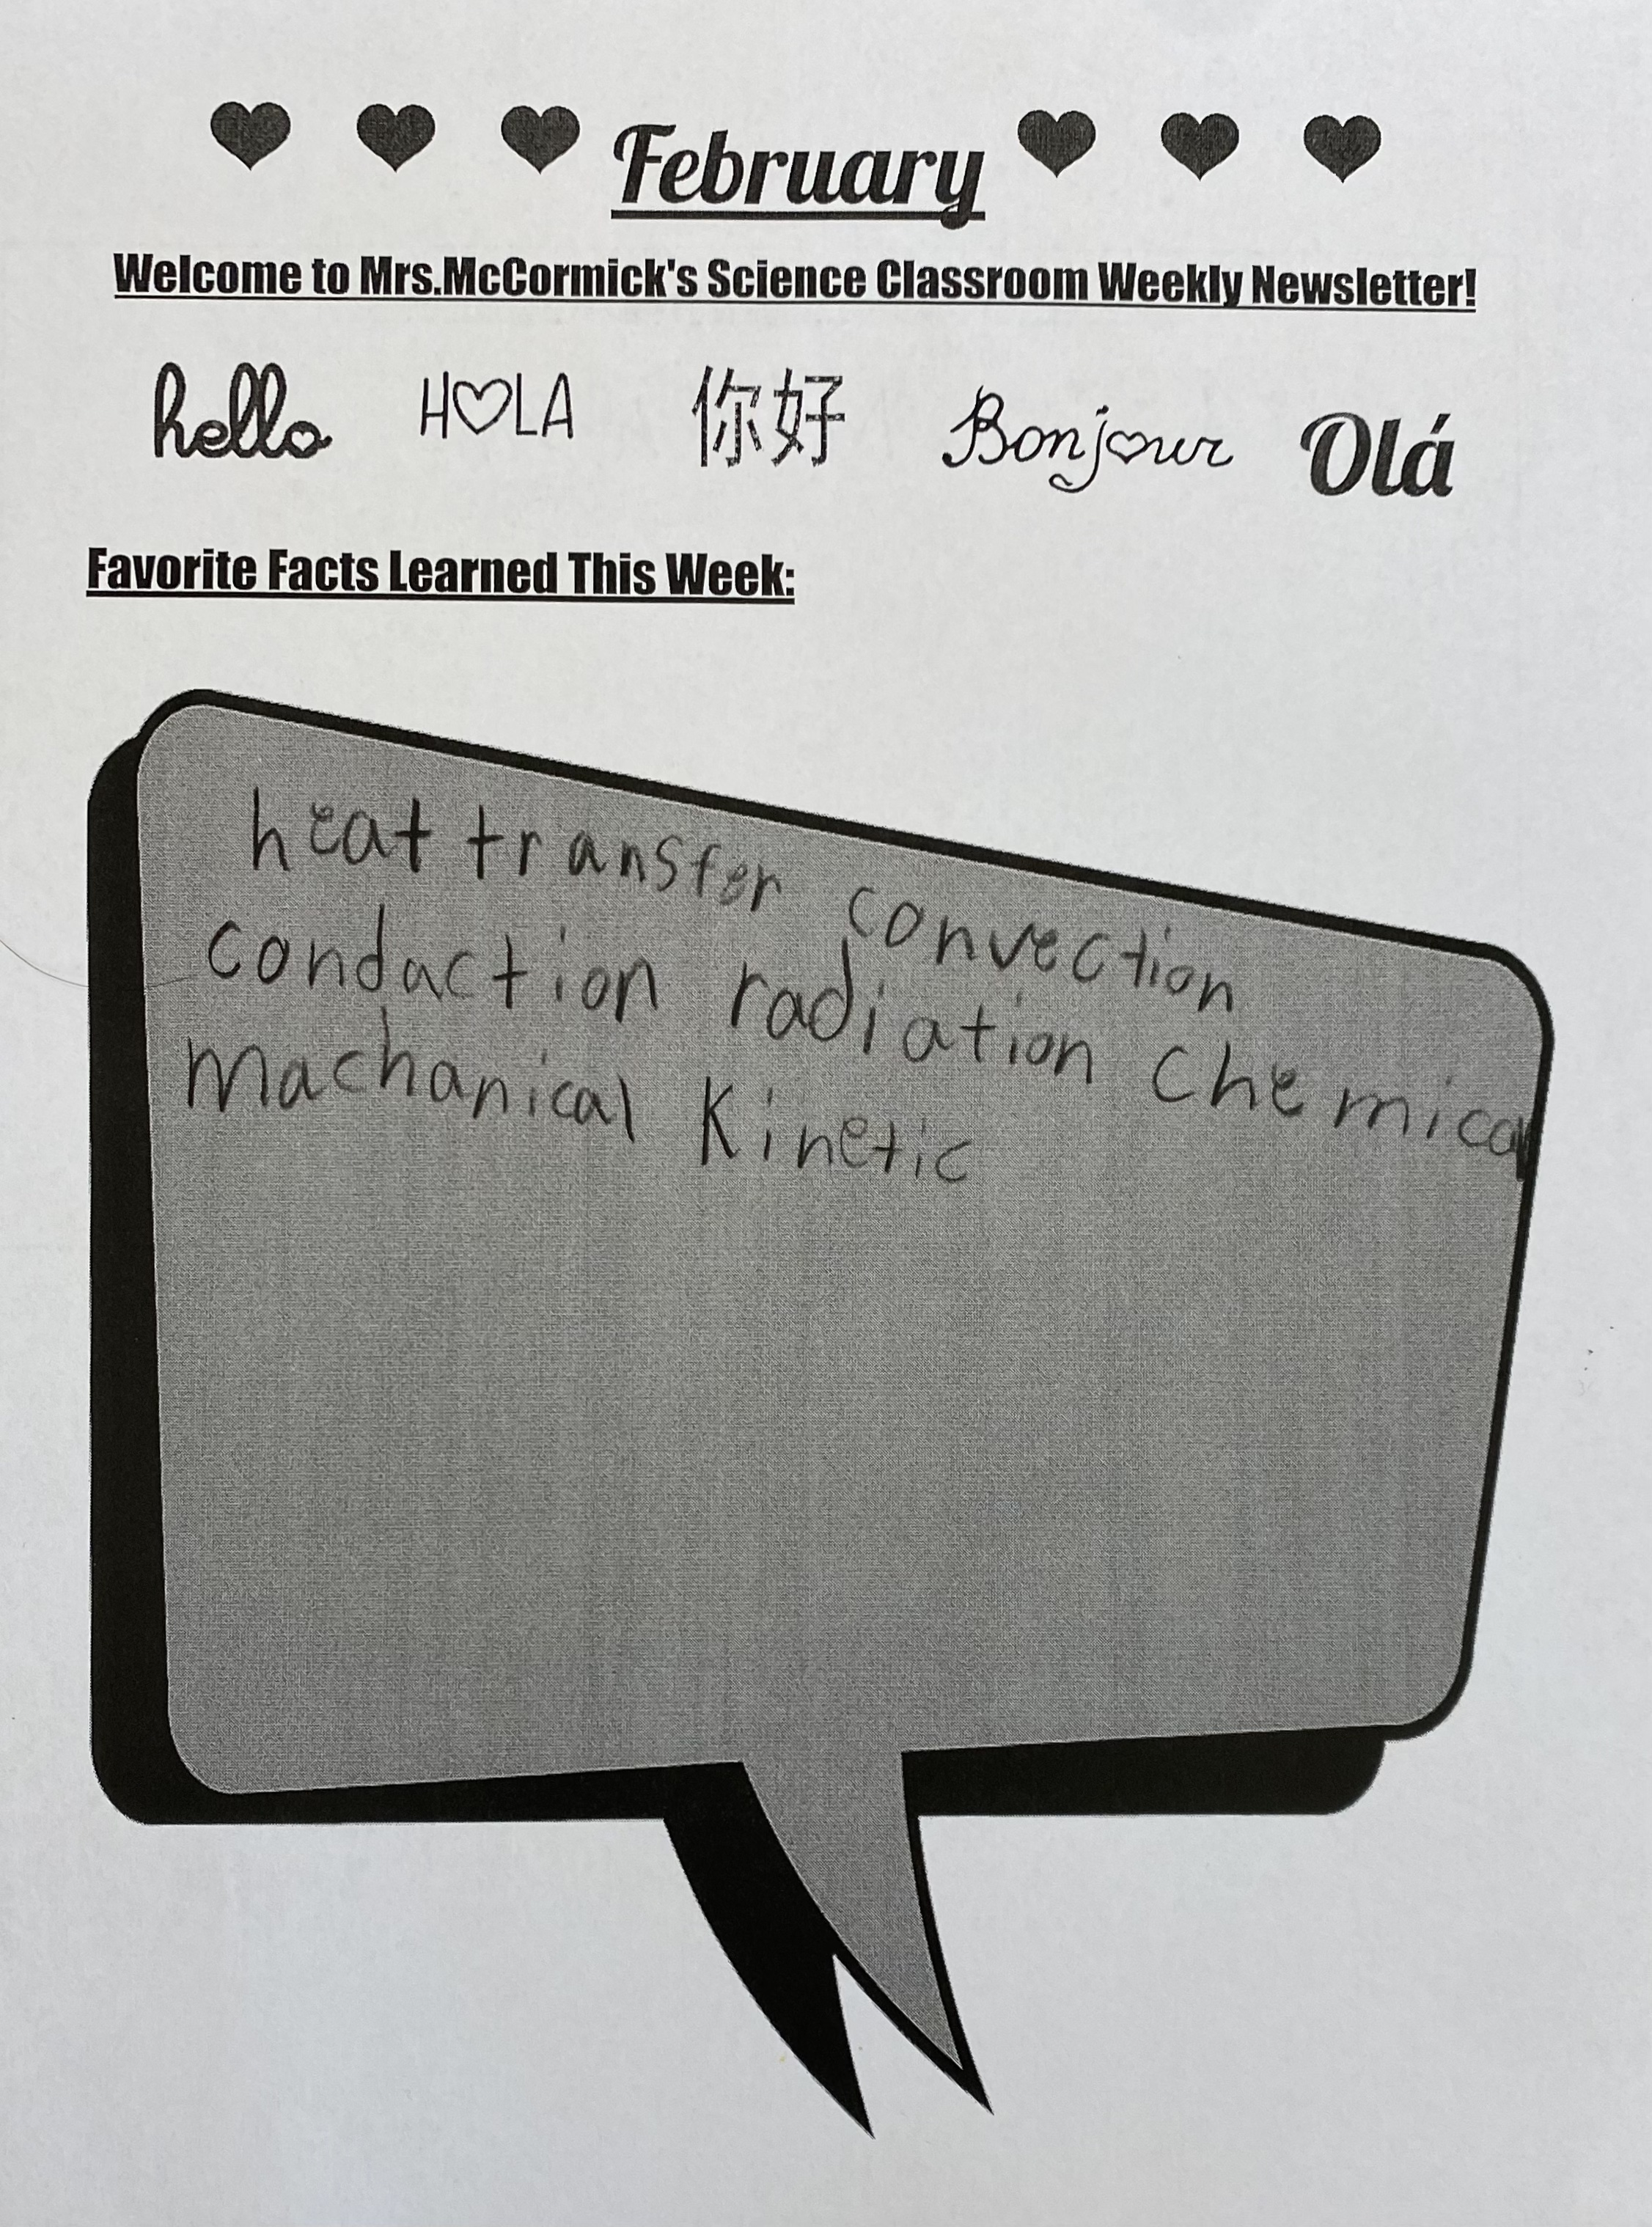 February
Welcome to Mrs.McCormick's Science Classroom Weekly Newsletter!
hello HOLA 你好 Bonjour Olá
Favorite Facts Learned This Week:
heat transfer convection
condaction radiation chemical
machanical Kinetic